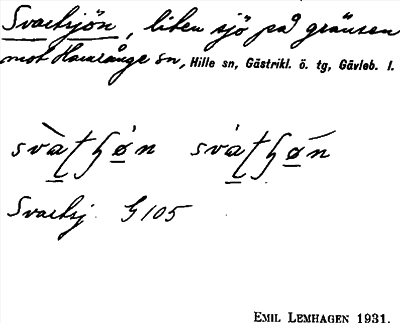 Svartsjön, liten sjö på gränsen
mot Hamrånge sn, Hille sn, Gästrikl. ö. tg, Gävleb. l.
Svartsj. G 105
EMIL LEMHAGEN 1931.